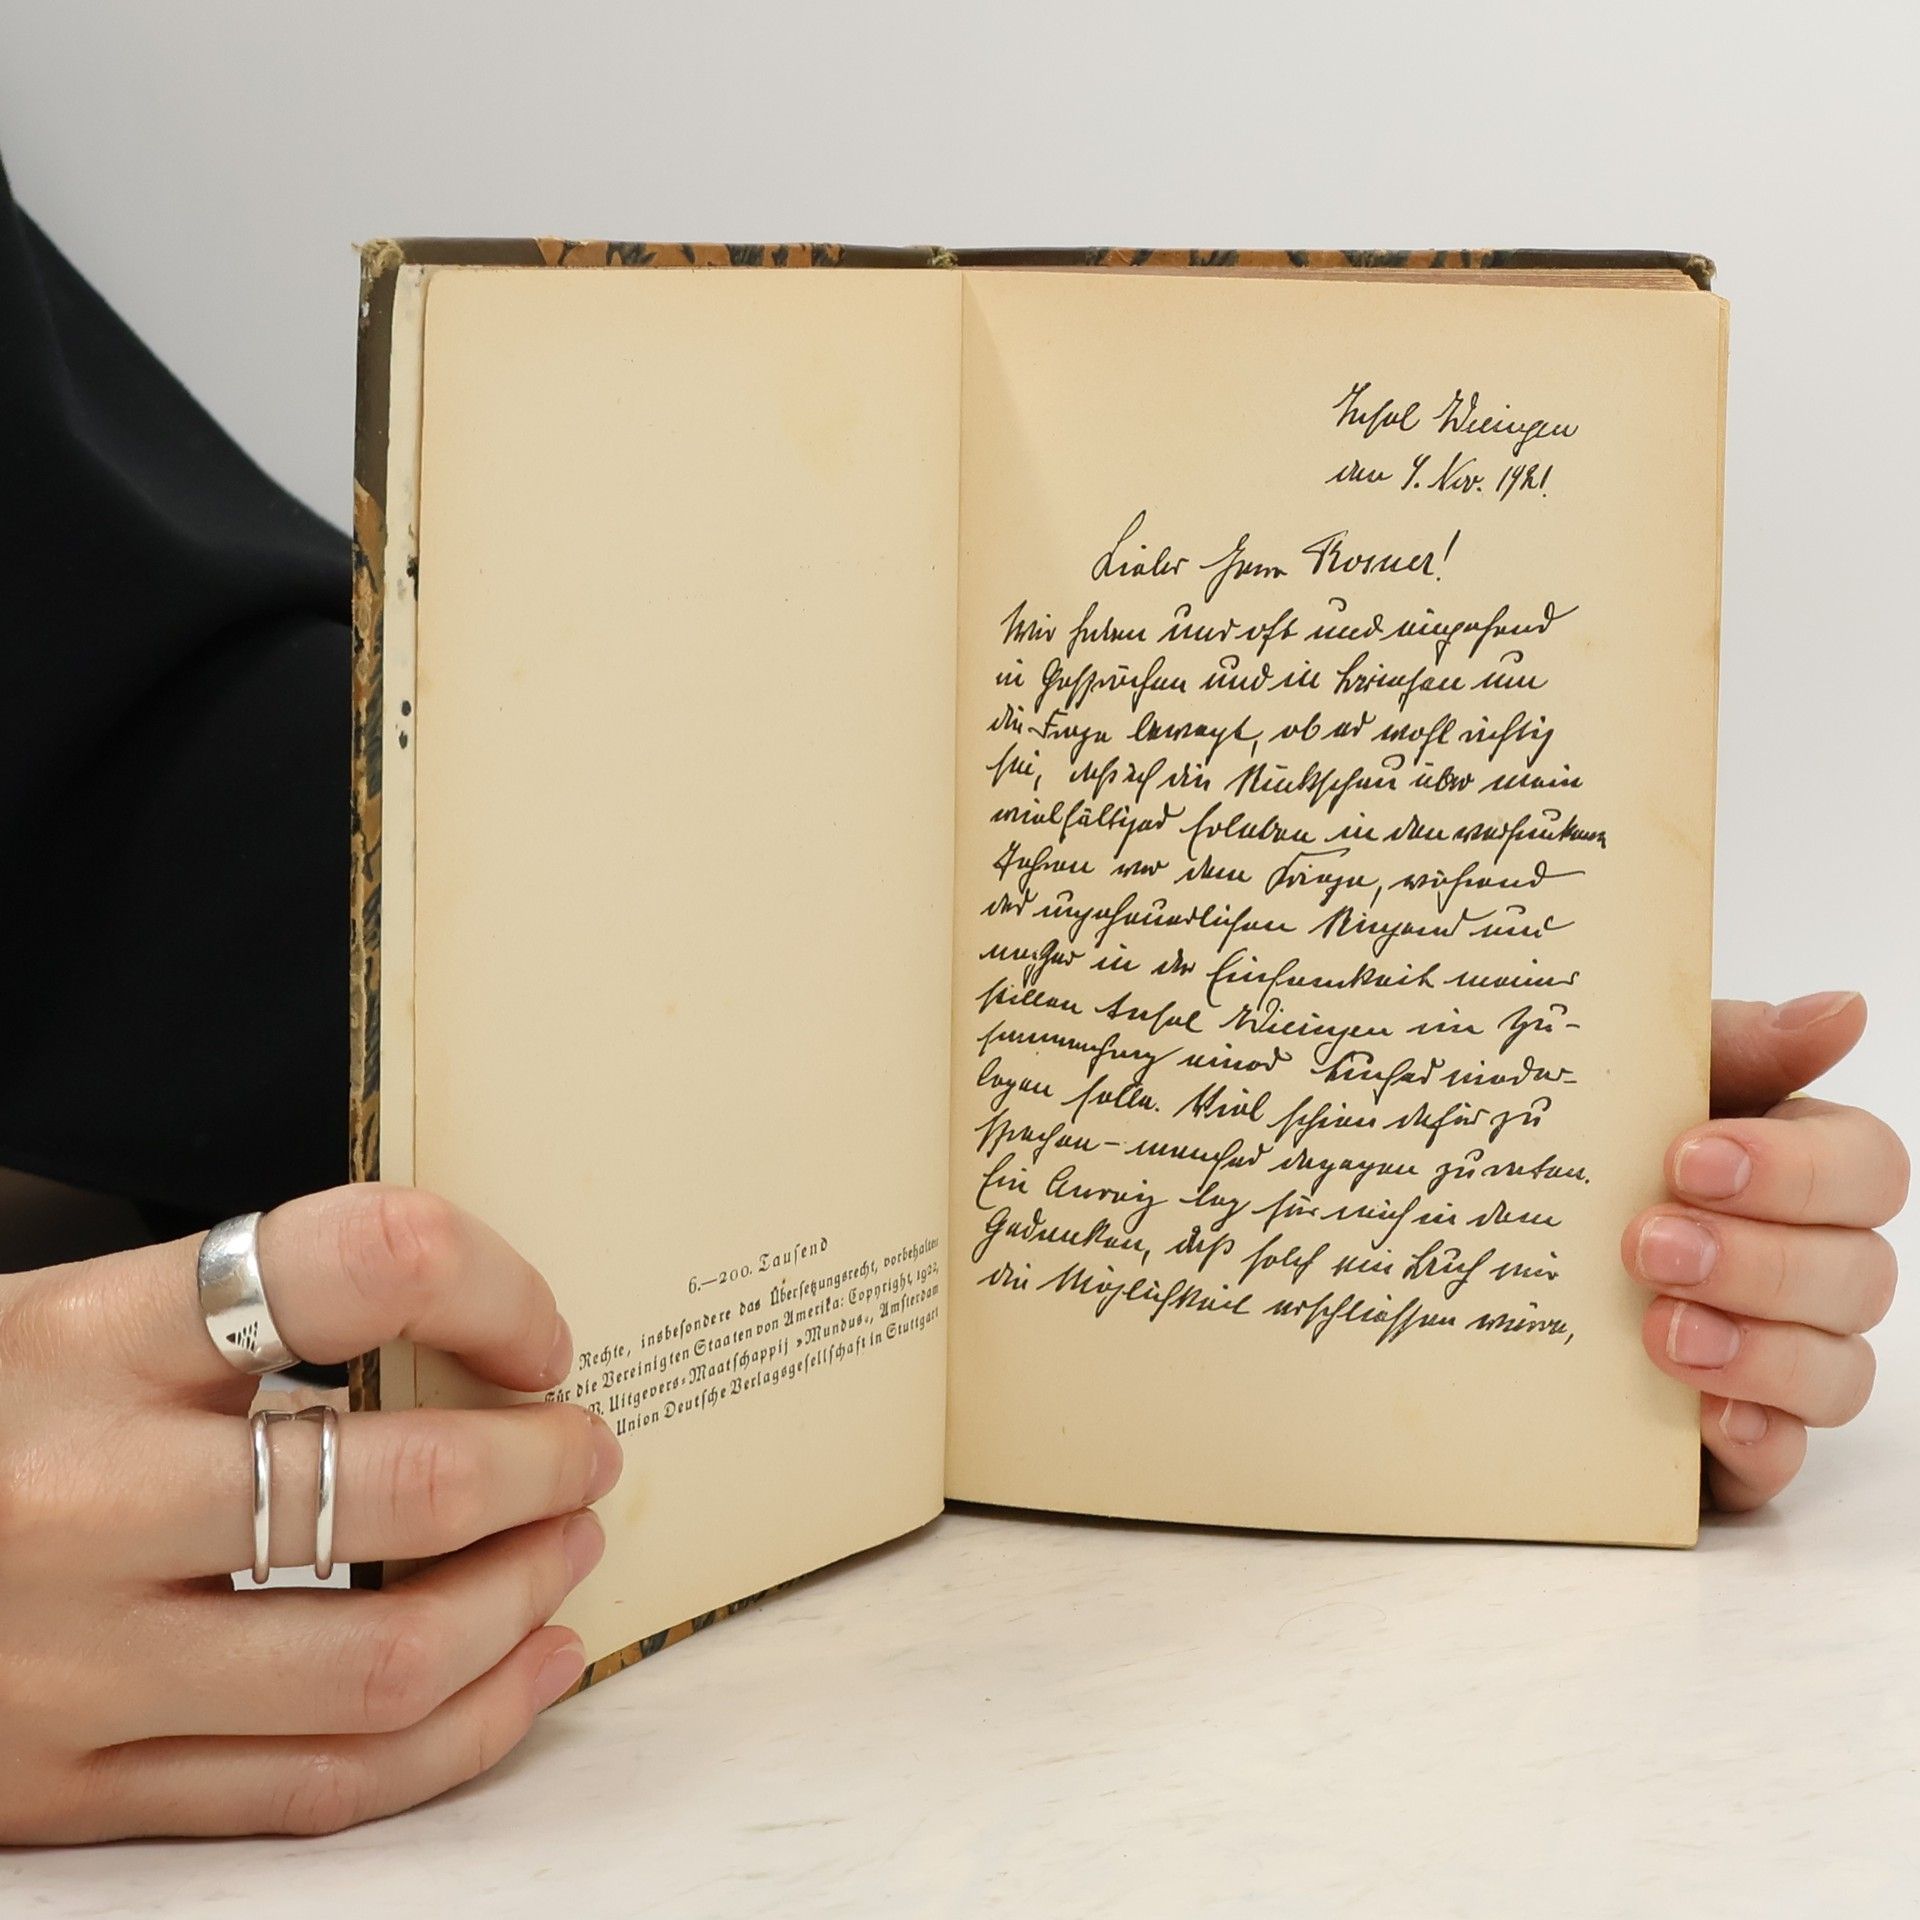 6.—200. Tauſend
Rechte, insbeſondere das Überſetzungsrecht, vorbehalten
Für die Vereinigten Staaten von Amerika: Copyright, 1922,
V. Uitgevers-Maatſchappij »Mundus«, Amſterdam
Union Deutſche Verlagsgeſellſchaft in Stuttgart
Inſel Wieringen
den 4. Nov. 1921.
Lieber Herr Rosner!
Wir haben uns oft und eingehend
in Geſprächen und in Brieſen um
die Frage bewegt, ob es wohl richtig
ſei, daß ich die Rückſchau über mein
vielfältiges Erleben in den verſunkenen
Jahren vor dem Kriege, während
des ungeheuerlichen Ringens und
nachher in der Einſamkeit meiner
ſtillen Inſel Wieringen im Zu-
ſammenhang eines Buches nieder-
legen ſolle. Viel ſchien dafür zu
ſprechen – manches dagegen zu reden.
Ein Anreiz lag für mich in dem
Gedanken, daß ſolch ein Buch mir
die Möglichkeit erſchlieſſen würde,